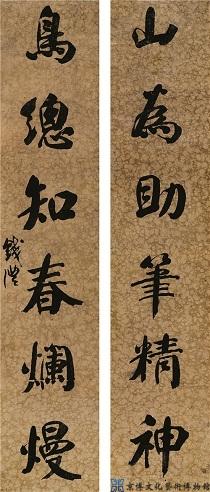 山為助筆精神
鳥總知春爛熳
錢灃
京博文化藝術博物館